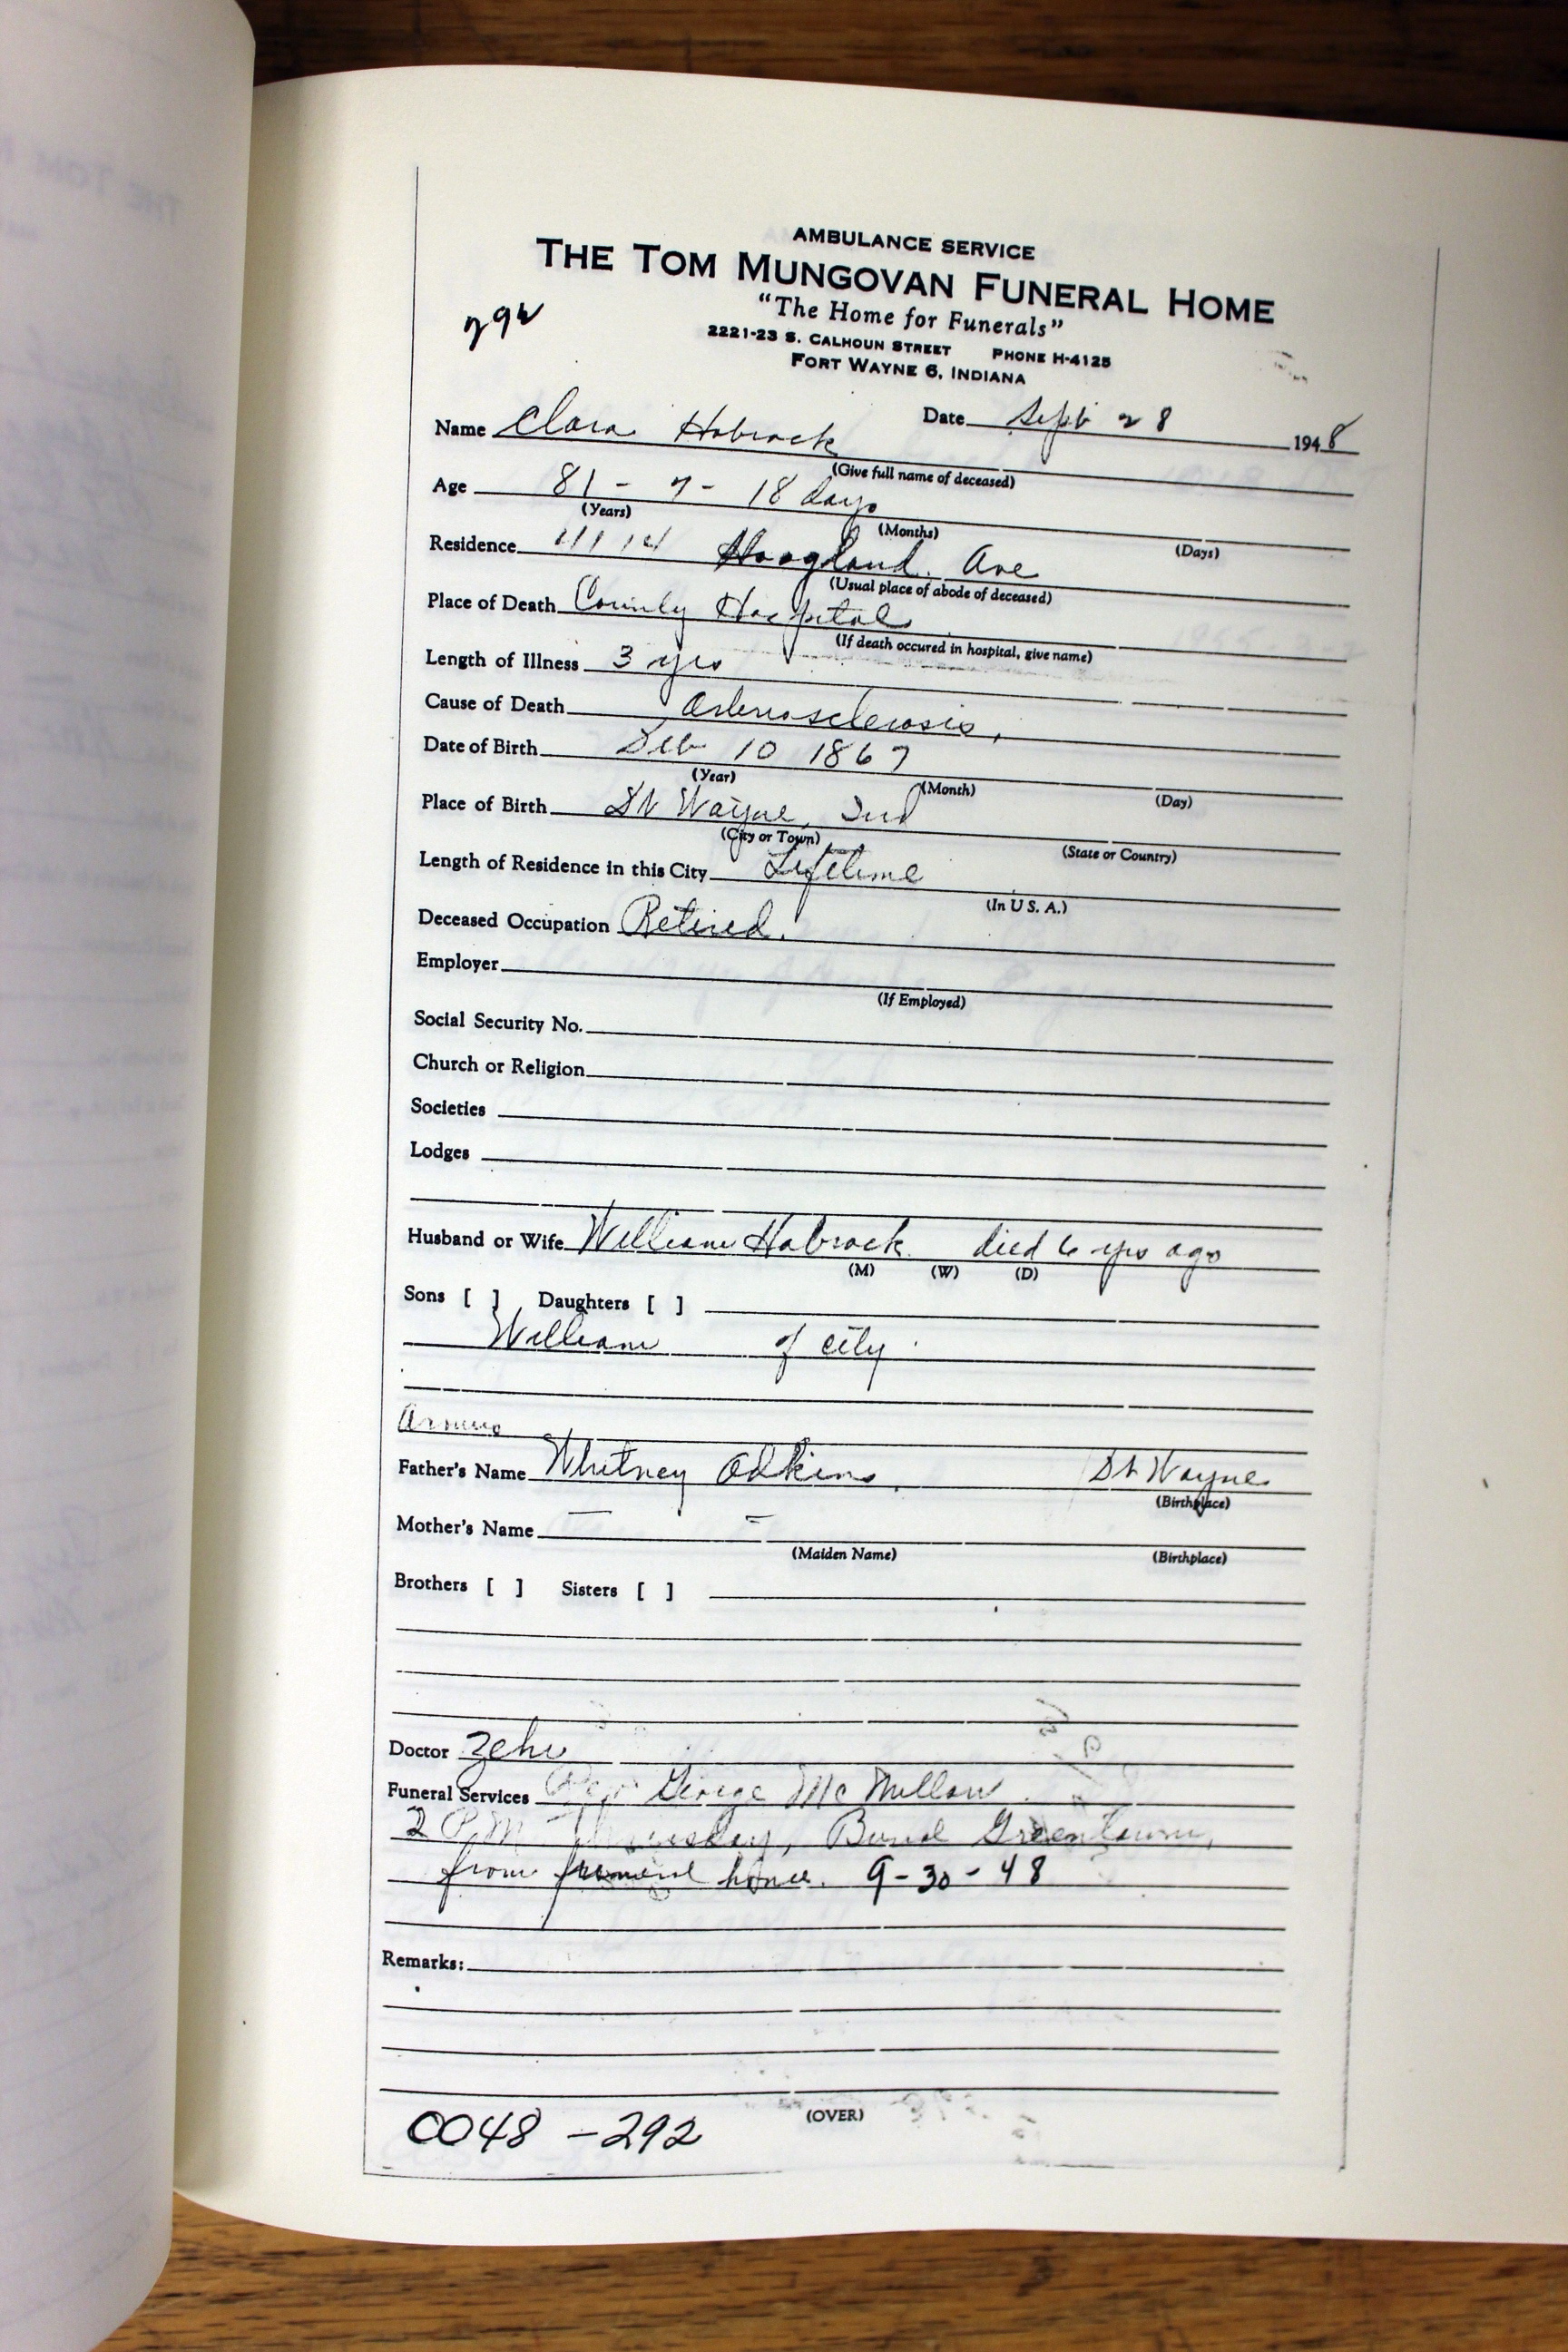 AMBULANCE SERVICE
THE TOM MUNGOVAN FUNERAL HOME
"The Home for Funerals"
292
2221-23 S. CALHOUN STREET PHONE H-4125
FORT WAYNE 6, INDIANA
Name Clara Habrock Date Sept 28 1948
(Give full name of deceased)
Age 81 - 7 - 18 days
(Years) (Months) (Days)
Residence 4114 Hoagland Ave
(Usual place of abode of deceased)
Place of Death County Hospital
(If death occured in hospital, give name)
Length of Illness 3 yrs
Cause of Death Arteriosclerosis,
Date of Birth Feb 10 1867
(Year) (Month) (Day)
Place of Birth Ft Wayne, Ind
(City or Town) (State or Country)
Length of Residence in this City Lifetime
(In U S. A.)
Deceased Occupation Retired.
Employer
(If Employed)
Social Security No.
Church or Religion
Societies
Lodges
Husband or Wife William Habrock died 6 yrs ago
(M) (W) (D)
Sons [ ] Daughters [ ]
William of city
Father's Name Whitney Adkins, Ft Wayne
(Birthplace)
Mother's Name — —
(Maiden Name) (Birthplace)
Brothers [ ] Sisters [ ]
Doctor
Funeral Services Rev George McMillan
2 P.M Thursday, Burial Greenlawn,
from funeral home. 9-30-48
Remarks:
(OVER)
0048 -292